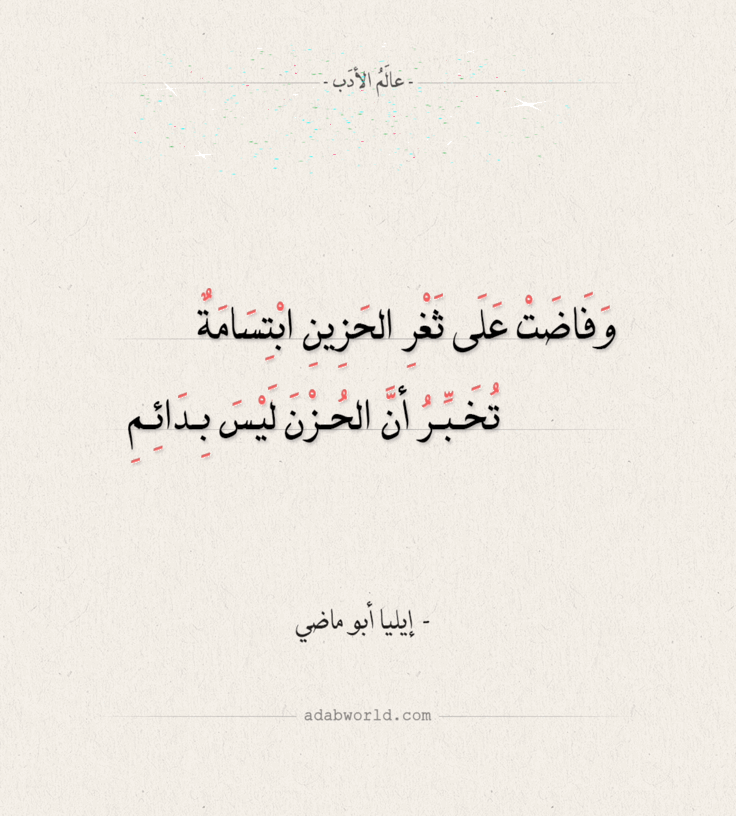 - عالَمُ الأدَب -
وَفَاضَتْ عَلَى ثَغْرِ الحَزِينِ ابْتِسَامَةٌ
تُخَبِّرُ أنَّ الحُزْنَ لَيْسَ بِدَائِمِ
- إيليا أبو ماضي
adabworld.com